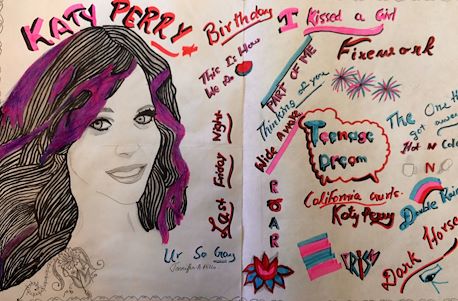 KATY PERRY
Birthday
I Kissed a Girl
This Is How
We Do
PART OF ME
Firework
Thinking of you
Wide Awake
Teenage
Dream
The One
got away
Hot N Cold
Last Friday Night
ROAR
California Gurls.
Katy Perry
Double Rain
Ur So Gay
PRISM
Dark Horse